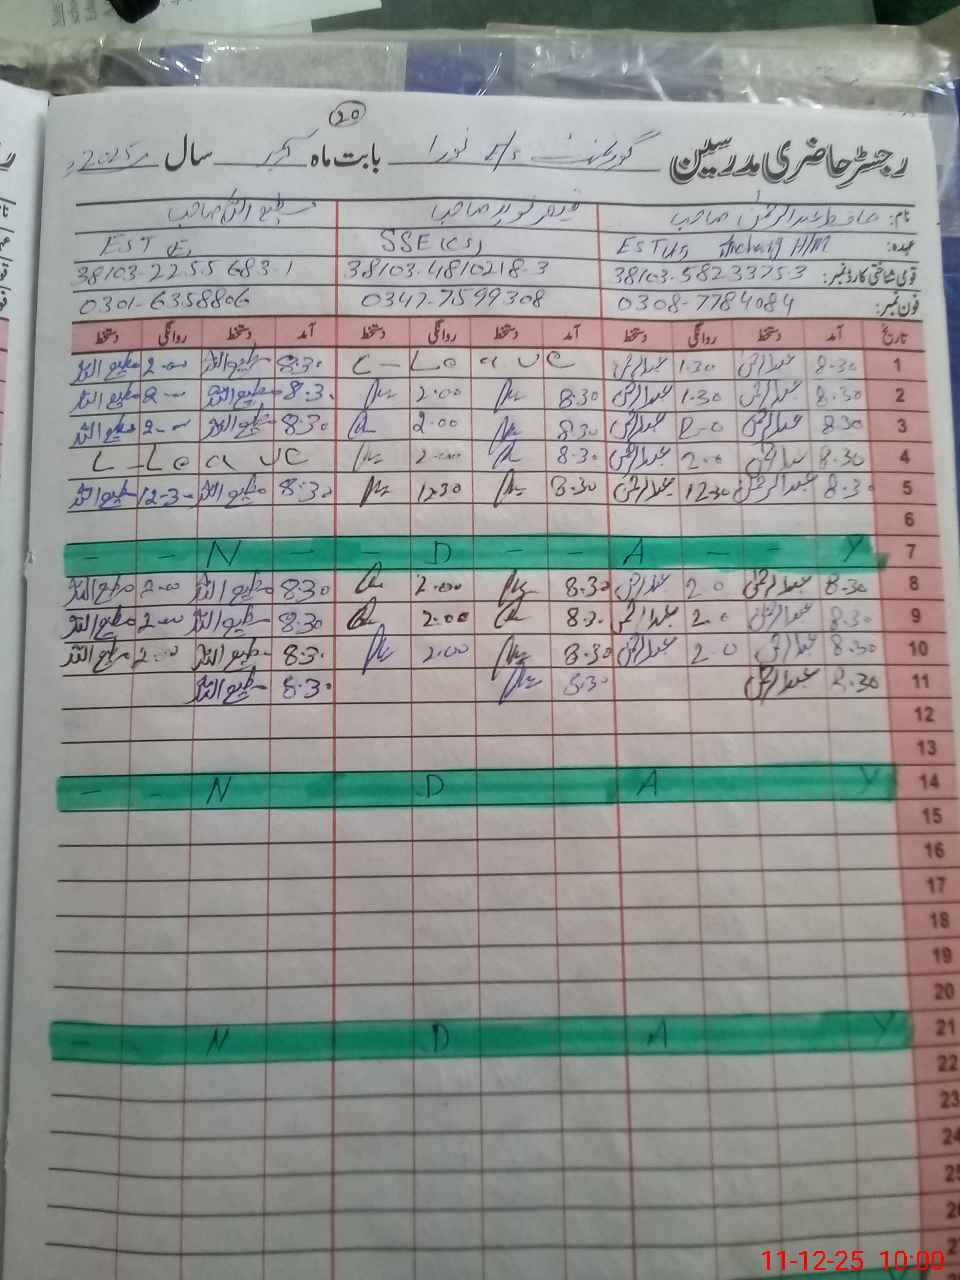 20
رجسٹر حاضری مدرسین گورنمنٹ E/s نورا بابت ماہ دسمبر سال 2025ء
نام: حافظ عبدالرحمٰن صاحب قیصر نوید صاحب مطیع اللہ صاحب
عہدہ: EST Incharg H/M SSE (CS) EST E
قومی شناختی کارڈ نمبر: 38103-5823375-3 38103-4810218-3 38103-2255683-1
فون نمبر: 0308-7784084 0347-7599308 0301-6358806
تاریخ آمد دستخط روانگی دستخط آمد دستخط روانگی دستخط آمد دستخط روانگی دستخط
1 8-30 عبدالرحمٰن 1-30 عبدالرحمٰن C U a L e - L 8-30 مطیع اللہ 2-00 مطیع اللہ
2 8-30 عبدالرحمٰن 1-30 عبدالرحمٰن 8-30 2-00 8-3. مطیع اللہ 2-00 مطیع اللہ
3 8-30 عبدالرحمٰن 2-0 عبدالرحمٰن 8-30 2-00 8-30 مطیع اللہ 2-00 مطیع اللہ
4 8-30 عبدالرحمٰن 2-0 عبدالرحمٰن 8-30 2-00 C U a L e - L
5 8-30 عبدالرحمٰن 12-30 عبدالرحمٰن 8-30 12-30 8-30 مطیع اللہ 12-30 مطیع اللہ
6
7 - - N - - D - - A - - Y
8 8-30 عبدالرحمٰن 2-0 عبدالرحمٰن 8-30 2-00 8-30 مطیع اللہ 2-00 مطیع اللہ
9 8-30 عبدالرحمٰن 2-0 عبدالرحمٰن 8-30 2-00 8-30 مطیع اللہ 2-00 مطیع اللہ
10 8-30 عبدالرحمٰن 2-0 عبدالرحمٰن 8-30 2-00 8-30 مطیع اللہ 2-00 مطیع اللہ
11 8-30 عبدالرحمٰن 8-30 8-30 مطیع اللہ
12
13
14 - - N D A Y
15
16
17
18
19
20
21 - N D A Y
22
23
24
25
26
27
11-12-25 10:00